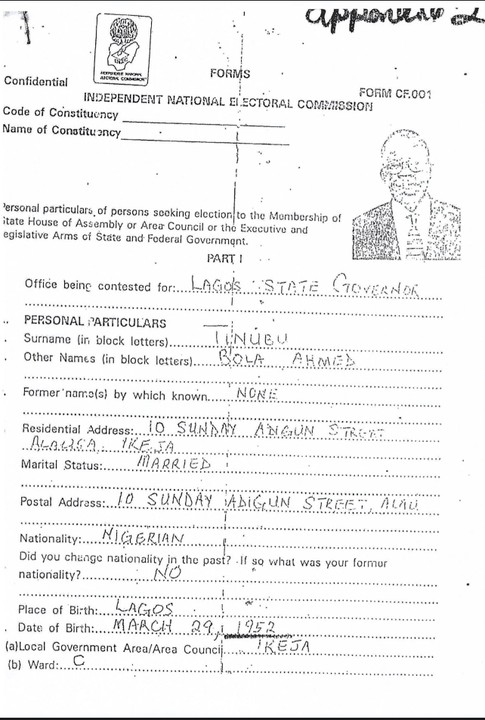 INDEPENDENT NATIONAL
ELECTORAL COMMISSION
Confidential
FORMS
FORM CF.001
INDEPENDENT NATIONAL ELECTORAL COMMISSION
Code of Constituency
Name of Constituency
Personal particulars of persons seeking election to the Membership of
State House of Assembly or Area Council or the Executive and
egislative Arms of State and Federal Government.
PART I
Office being contested for: LAGOS STATE GOVERNOR
PERSONAL PARTICULARS
Surname (in block letters) TINUBU
Other Names (in block letters) BOLA AHMED
Former name(s) by which known NONE
Residential Address: 10 SUNDAY ADIGUN STREET
ALAUSA IKEJA
Marital Status: MARRIED
Postal Address: 10 SUNDAY ADIGUN STREET, ALAU
Nationality: NIGERIAN
Did you change nationality in the past? If so what was your former
nationality? NO
Place of Birth: LAGOS
Date of Birth: MARCH 29, 1952
(a) Local Government Area/Area Council IKEJA
(b) Ward: C